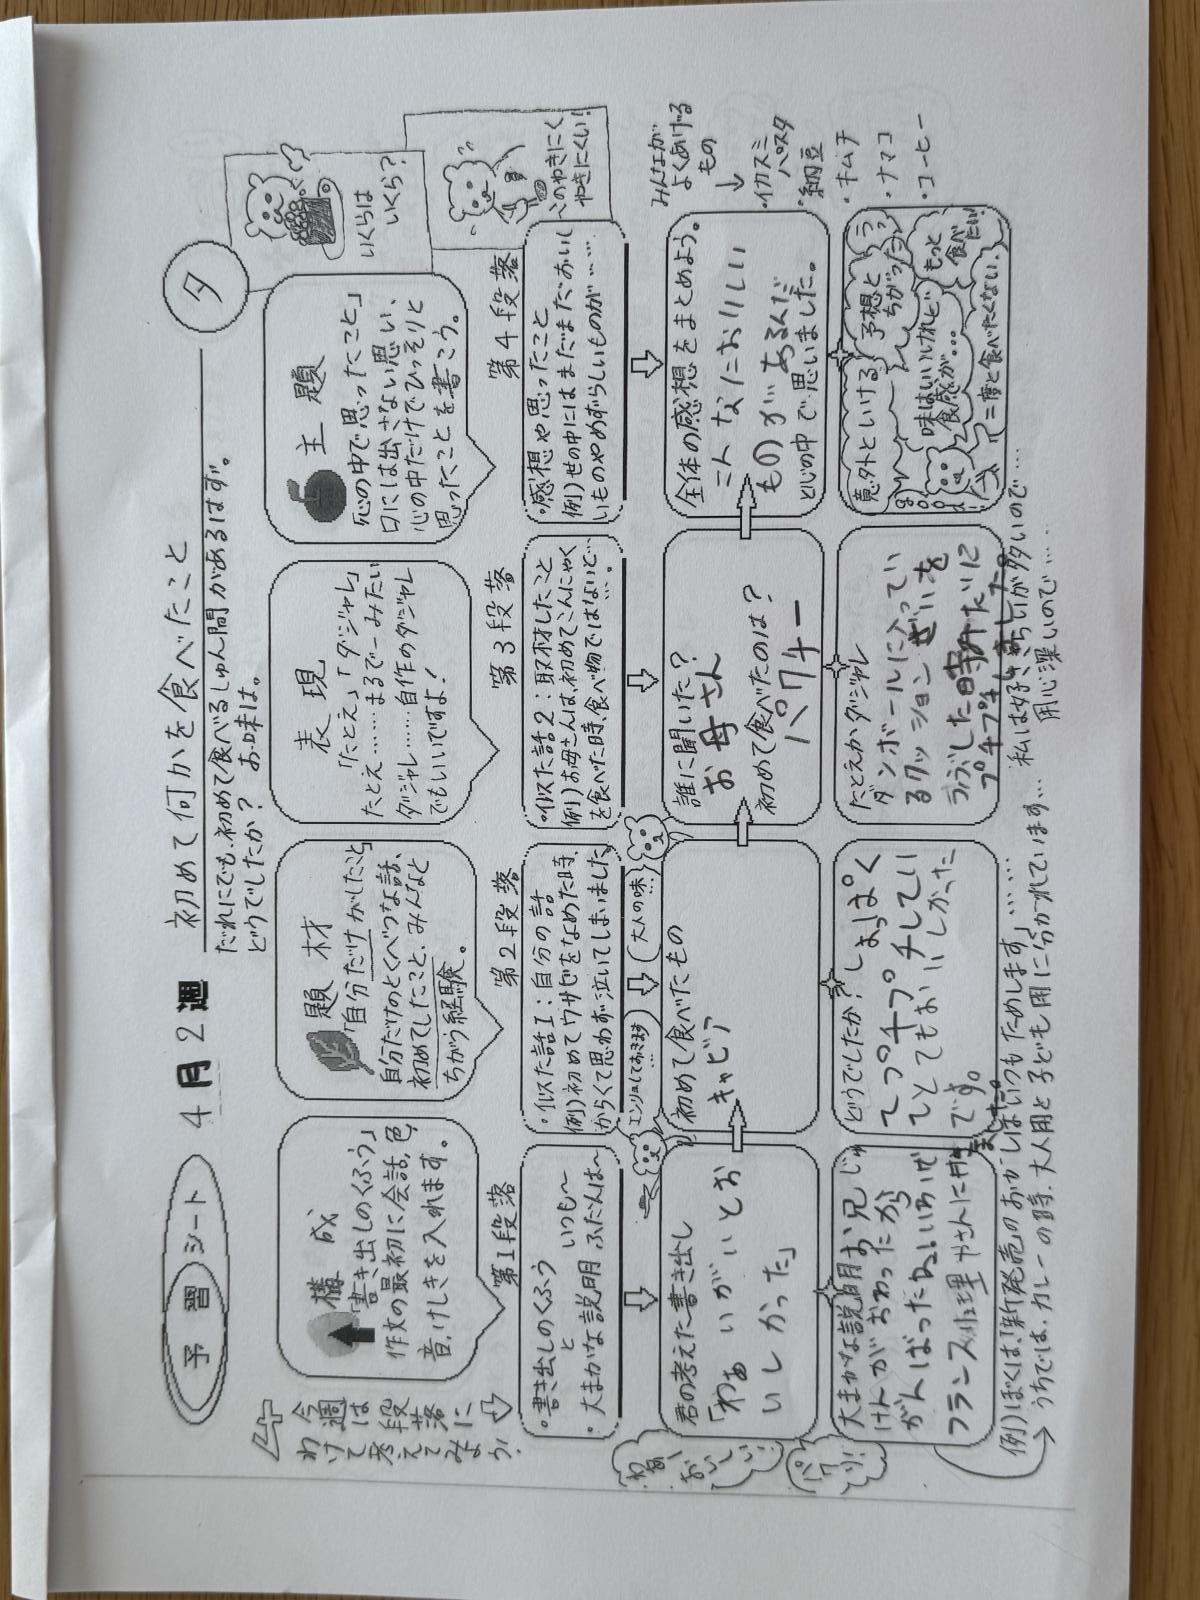 予習シート
4月2週
初めて何かを食べたこと
だれにでも、初めて食べるしゅん間があるはず。
どうでしたか? お味は。
タ
いくらは
いくら?
このやきにく
やきにくい!
今週は
段落に
わけて
考えて
みよう!
構成
「書き出しのくふう」
作文の最初に会話、色、
音、けしきを入れます。
題材
「自分だけがしたこと」
自分だけのとくべつな話、
初めてしたこと、みんなと
ちがう経験。
表現
「たとえ」「ダジャレ」
たとえ……まるで〜みたい
ダジャレ……自作のダジャレ
でもいいですよ!
主題
「心の中で思ったこと」
口には出さない思い、
心の中だけでひっそりと
思ったことを書こう。
第1段落
・書き出しのくふう
と いつも〜
・大まかな説明 ふだんは〜
第2段落
・似た話1:自分の話
例)初めてワサビをなめた時、
からくて思わず泣いてしまいました
第3段落
・似た話2:取材したこと
例)お母さんは、初めてこんにゃく
を食べた時、食べ物ではないと…
第4段落
・感想や思ったこと
例)世の中にはまだまだおいし
いものやめずらしいものが……
エンリョしておきます…
大人の味…
みんながよくあげるもの
↓
・イカスミパスタ
・納豆
・キムチ
・ナマコ
・コーヒー
君の考えた書き出し
「わぁ いがいとお
いしかった」
初めて食べたもの
キャビア
誰に聞いた?
お母さん
初めて食べたのは?
パクチー
全体の感想をまとめよう。
こんなにおいしい
ものがあるんだ
と心の中で思いました。
わあーおいしい!
パクリ!
大まかな説明 お兄じゅ
けんがおわったから
がんばったねいわいぜ
フランス料理やさんに
どうでしたか? しょっぱく
てプチプチしてい
てとてもおいしかった
です。
たとえかダジャレ
ダンボールに入ってい
るクッションざいを
つぶした時みたいに
プチプチしました。
意外といける!
予想とちがった…
味はいいけれど食感が…
もっと、食べたい!
二度と食べたくない。
例)ぼくは「新発売のおかしはいつもためします」……
うちでは、カレーの時、大人用と子ども用に分かれています…
私は好ききらいが多いので……
用心深いので……